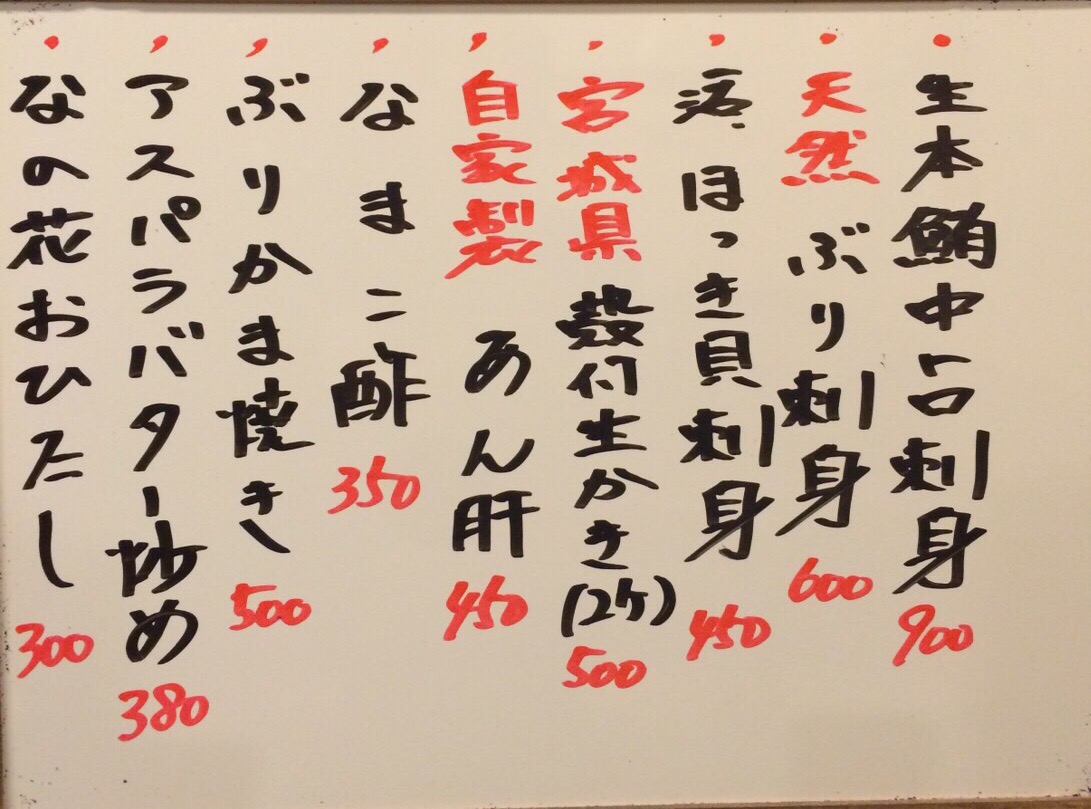 ・生本鮪中トロ刺身 900
・天然 ぶり刺身 600
・活ほっき貝刺身 450
・宮城県 殻付生かき(2ケ) 500
・自家製 あん肝 450
・なまこ酢 350
・ぶりかま焼き 500
・アスパラバター炒め 380
・なの花おひたし 300